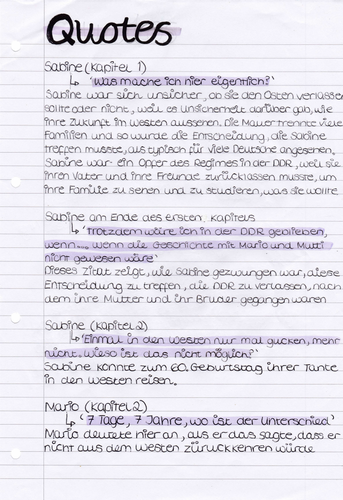 Quotes
Sabine (Kapitel 1)
↳ 'Was mache ich hier eigentlich?'
Sabine war sich unsicher, ob sie den Osten verlassen
sollte oder nicht, weil es Unsicherheit darüber gab, wie
ihre Zukunft im Westen aussehen. Die Mauer trennte viele
Familien und so wurde die Entscheidung, die Sabine
treffen musste, als typisch für viele Deutsche angesehen.
Sabine war ein Opfer des Regimes in der DDR, weil sie
ihren Vater und ihre Freunde zurücklassen musste, um
ihre Familie zu sehen und zu studieren, was sie wollte
Sabine am Ende des ersten Kapitels
↳ 'Trotzdem wäre ich in der DDR geblieben,
wenn... wenn die Geschichte mit Mario und Mutti
nicht gewesen wäre'
Dieses Zitat zeigt, wie Sabine gezwungen war, diese
Entscheidung zu treffen, die DDR zu verlassen, nach
dem ihre Mutter und ihr Bruder gegangen waren
Sabine (Kapitel 2)
↳ 'Einmal in den Westen nur mal gucken, mehr
nicht. Wieso ist das nicht möglich?'
Sabine konnte zum 60. Geburtstag ihrer Tante
in den Westen reisen.
Mario (Kapitel 2)
↳ '7 Tage, 7 Jahre, wo ist der Unterschied'
Mario deutete hier an, als er das sagte, dass er
nicht aus dem Westen zurückkehren würde